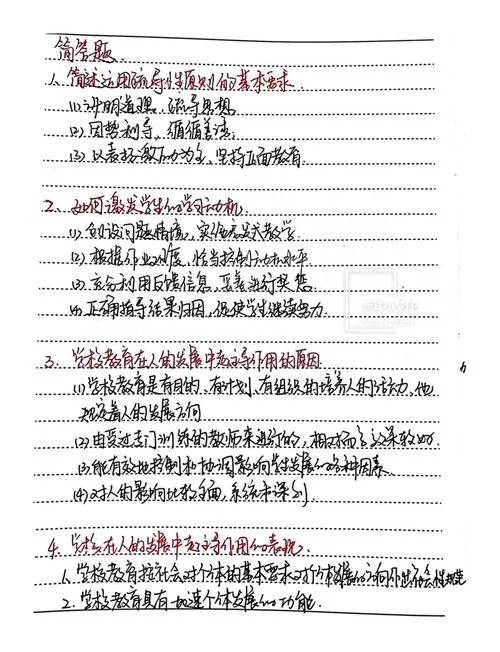 简答题
1、简述运用疏导性原则的基本要求.
(1)讲明道理、疏导思想
(2)因势利导、循循善诱
(3)以表扬激励为主、坚持正面教育
2、如何激发学生的学习动机.
(1)创设问题情境,实施启发式教学
(2)根据作业难度,恰当控制动机水平
(3)充分利用反馈信息,妥善进行奖惩
(4)正确指导结果归因,促使学生继续努力
3、学校教育在人的发展中起主导作用的原因
(1)学校教育是有目的、有计划、有组织的培养人的活动,他
规定着人的发展方向
(2)由受过专门训练的教师来进行的,相对而言效果较好
(3)能有效地控制和协调影响学生发展的各种因素
(4)对人的影响比较全面,系统和深刻.
4、学校在人的发展中起主导作用的表现.
1、学校教育按社会对个体的基本要求对个体发展的方向作出社会性规范
2、学校教育具有加速个体发展的功能.